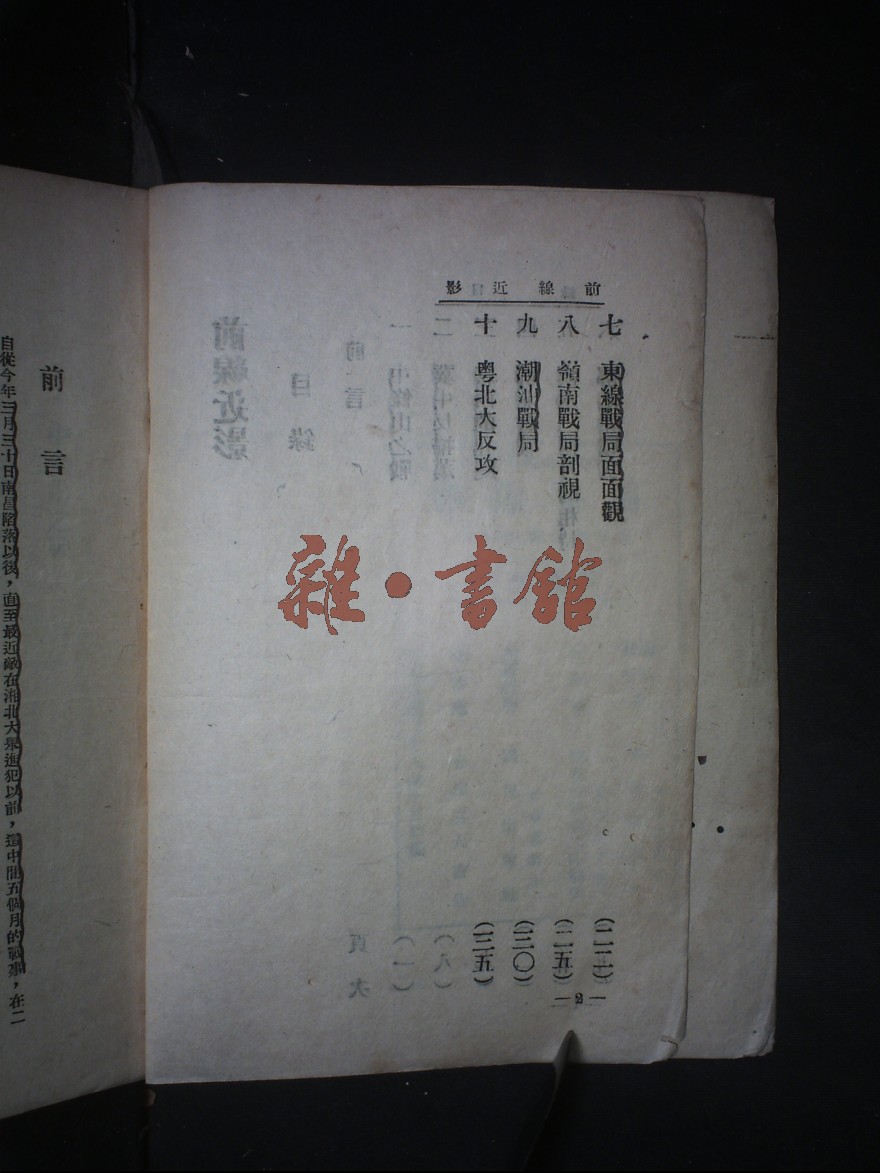 前線近影
七 東線戰局面面觀
八 嶺南戰局剖視
九 潮汕戰局
十 粵北大反攻
—2—
雜·書館
前言
自從今年三月三十日南昌陷落以後，直至最近敵在湘北大舉進犯以前，這中間五個月的戰事，在二